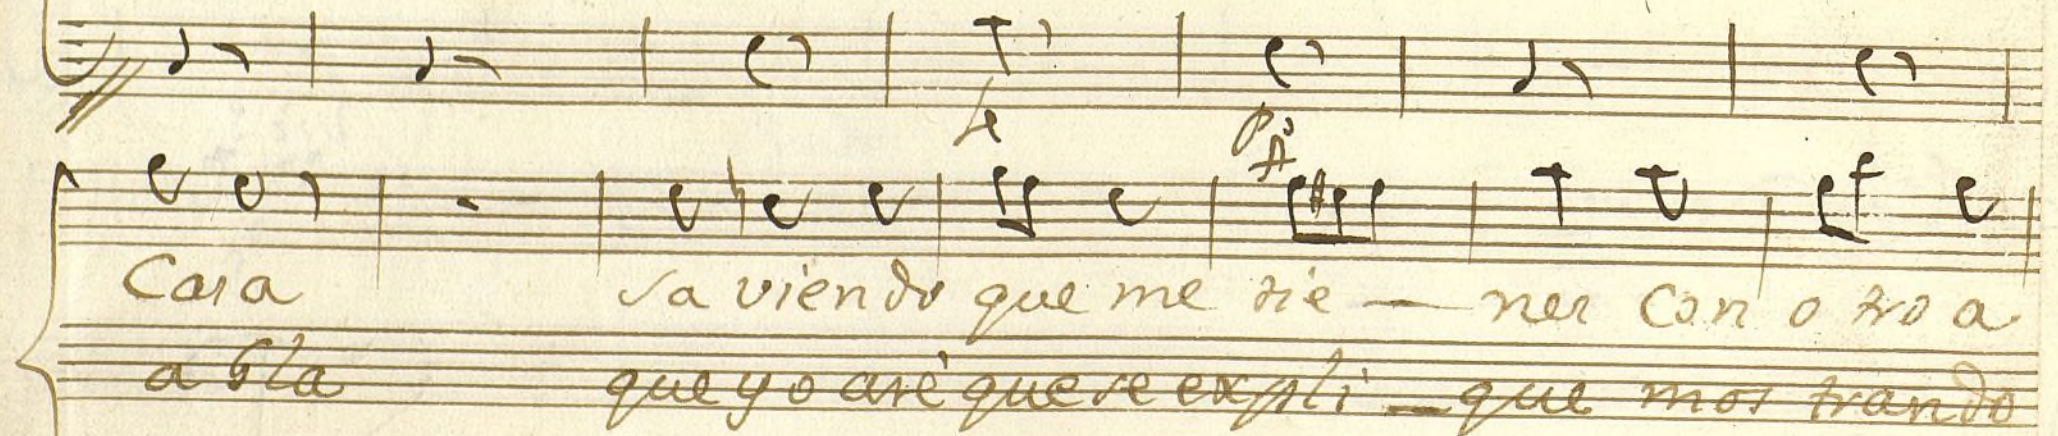 Le pº
A
Casa saviendo que me tie — nes con otro a
abla que yo arè que se expli — que mostrando